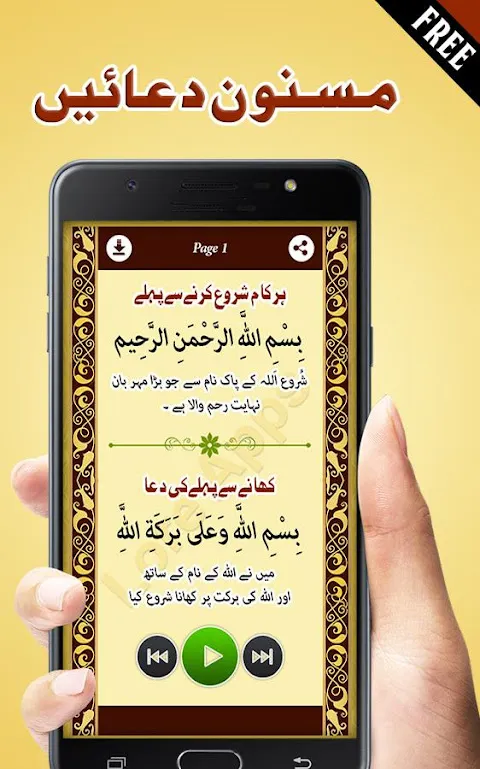 FREE
مسنون دعائیں
Page 1
ہر کام شروع کرنے سے پہلے
بِسْمِ اللَّهِ الرَّحْمَنِ الرَّحِيم
شُروع اَللہ کے پاک نام سے جو بڑا مہر بان
نہایت رحم والا ہے ۔
کھانے سے پہلے کی دعا
بِسْمِ اللَّهِ وَعَلَى بَرَكَة اللَّهِ
میں نے اللہ کے نام کے ساتھ
اور اللہ کی برکت پر کھانا شروع کیا